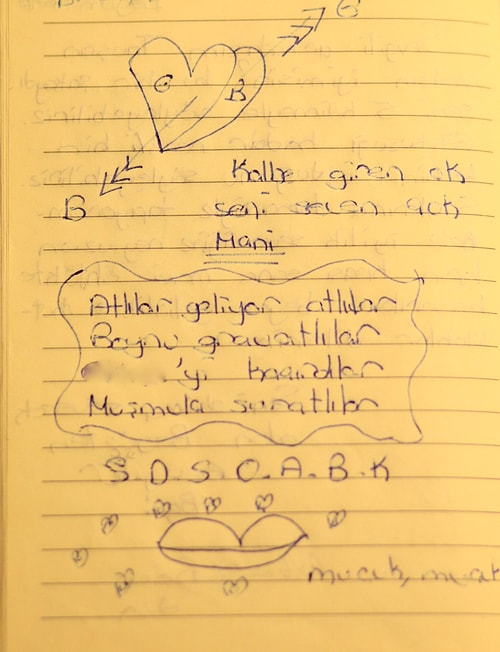 G
G B
B
Kalbe giren ok
seni seven ack
Mani
Atlılar geliyor atlılar
Boynu gravatlılar
'yi kaçırdılar
Muşmula suratlılar
S.D.S.O.A.B.K
mucuk, mucuk